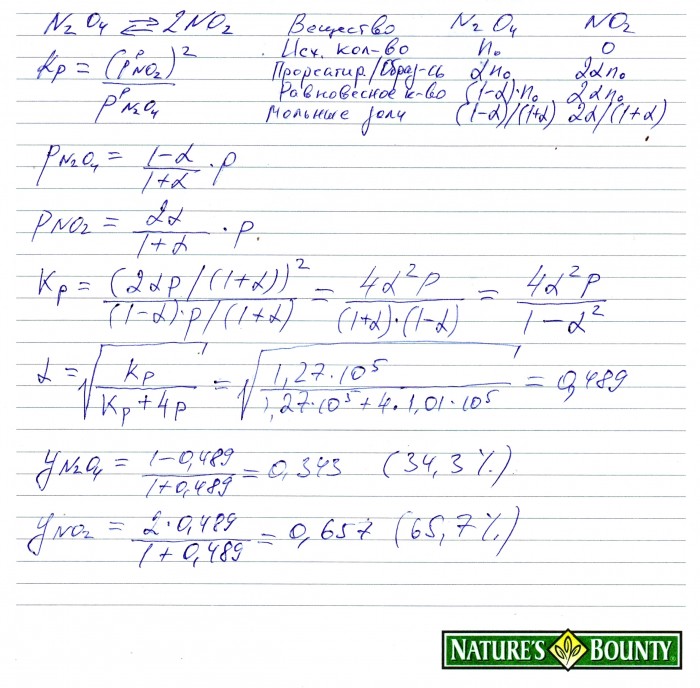 N₂O₄ ⇄ 2NO₂ Вещество N₂O₄ NO₂
Исх. кол-во n₀ 0
Kp = (PᵖNO₂)² / PᵖN₂O₄ Прореагир/Образ-сь αn₀ 2αn₀
Равновесное к-во (1-α)·n₀ 2αn₀
Мольные доли (1-α)/(1+α) 2α/(1+α)
PN₂O₄ = (1-α)/(1+α) · P
PNO₂ = 2α/(1+α) · P.
Kp = (2αP/(1+α))² / ((1-α)·P/(1+α)) = 4α²P / ((1+α)·(1-α)) = 4α²P / (1-α²)
α = √(Kp / (Kp+4P)) = √(1,27·10⁵ / (1,27·10⁵+4·1,01·10⁵)) = 0,489
yN₂O₄ = (1-0,489)/(1+0,489) = 0,343 (34,3%)
yNO₂ = (2·0,489)/(1+0,489) = 0,657 (65,7%)
NATURE'S BOUNTY